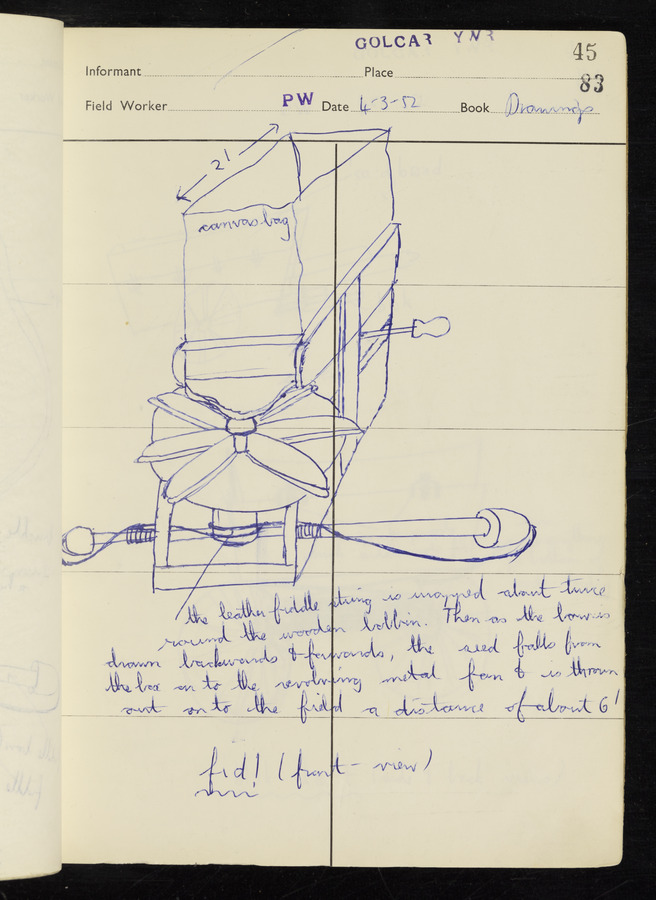 GOLCAR YNR
45
Informant Place
83
Field Worker PW Date 4-3-52 Book Drawings
2'
canvas bag
the leather fiddle string is wrapped about twice
round the wooden bobbin. Then as the bow is
drawn backwards & forwards, the seed falls from
the box on to the revolving metal fan & is thrown
out on to the field a distance of about 6'
fɪd! (front-view)